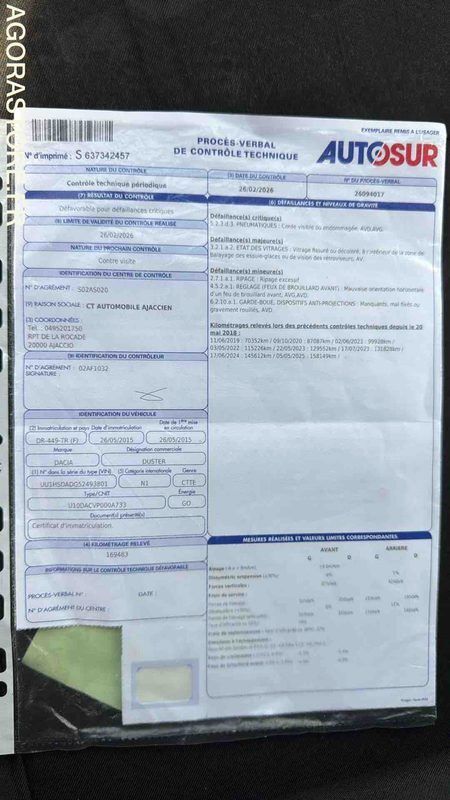 EXEMPLAIRE REMIS A L'USAGER
N° d'imprimé : S 637342457
PROCÈS-VERBAL
DE CONTRÔLE TECHNIQUE
AUTOSUR
NATURE DU CONTRÔLE
Contrôle technique périodique
(5) DATE DU CONTRÔLE
26/02/2026
N° DU PROCÈS-VERBAL
26094017
(7) RÉSULTAT DU CONTRÔLE
Défavorable pour défaillances critiques
(8) LIMITE DE VALIDITÉ DU CONTRÔLE RÉALISÉ
26/02/2026
NATURE DU PROCHAIN CONTRÔLE
Contre visite
IDENTIFICATION DU CENTRE DE CONTRÔLE
N° D'AGRÉMENT : S02AS020
(9) RAISON SOCIALE : CT AUTOMOBILE AJACCIEN
(3) COORDONNÉES :
Tel. : 0495201750
RPT DE LA ROCADE
20000 AJACCIO
(9) IDENTIFICATION DU CONTRÔLEUR
N° D'AGRÉMENT : 02AF1032
SIGNATURE :
IDENTIFICATION DU VÉHICULE
(2) Immatriculation et pays
Date d'immatriculation
Date de 1ère mise en circulation
DR-449-TR (F)
26/05/2015
26/05/2015
Marque
Désignation commerciale
DACIA
DUSTER
(1) N° dans la série du type (VIN)
(5) Catégorie internationale
Genre
UU1HSDADG52493801
N1
CTTE
Type/CNIT
Énergie
U10DACVP000A733
GO
Document(s) présenté(s)
Certificat d'immatriculation.
(4) KILOMÉTRAGE RELEVÉ
169483
INFORMATIONS SUR LE CONTRÔLE TECHNIQUE DÉFAVORABLE
PROCÈS-VERBAL N° :
DATE :
N° D'AGRÉMENT DU CENTRE :
(6) DÉFAILLANCES ET NIVEAUX DE GRAVITÉ
Défaillance(s) critique(s)
5.2.3.d3. PNEUMATIQUES : Corde visible ou endommagée. AVD,AVG.
Défaillance(s) majeure(s)
3.2.1.a.2. ETAT DES VITRAGES : Vitrage fissuré ou décoloré, à l'intérieur de la zone de
Balayage des essuie-glaces ou de vision des rétroviseurs. AV.
Défaillance(s) mineure(s)
2.7.1.a.1. RIPAGE : Ripage excessif
4.5.2.a.1. RÉGLAGE (FEUX DE BROUILLARD AVANT) : Mauvaise orientation horizontale
d'un feu de brouillard avant, AVG,AVD.
6.2.10.a.1. GARDE-BOUE, DISPOSITIFS ANTI-PROJECTIONS : Manquants, mal fixés ou
gravement rouillés, AVD.
Kilométrages relevés lors des précédents contrôles techniques depuis le 20
mai 2018 :
11/06/2019 : 70352km / 09/10/2020 : 87087km / 02/06/2021 : 99928km /
03/05/2022 : 115226km / 22/05/2023 : 129552km / 17/07/2023 : 131828km /
17/06/2024 : 145612km / 05/05/2025 : 158149km /
MESURES RÉALISÉES ET VALEURS LIMITES CORRESPONDANTES
AVANT
ARRIÈRE
G
D
G
D
Forces verticales :
Frein de service :